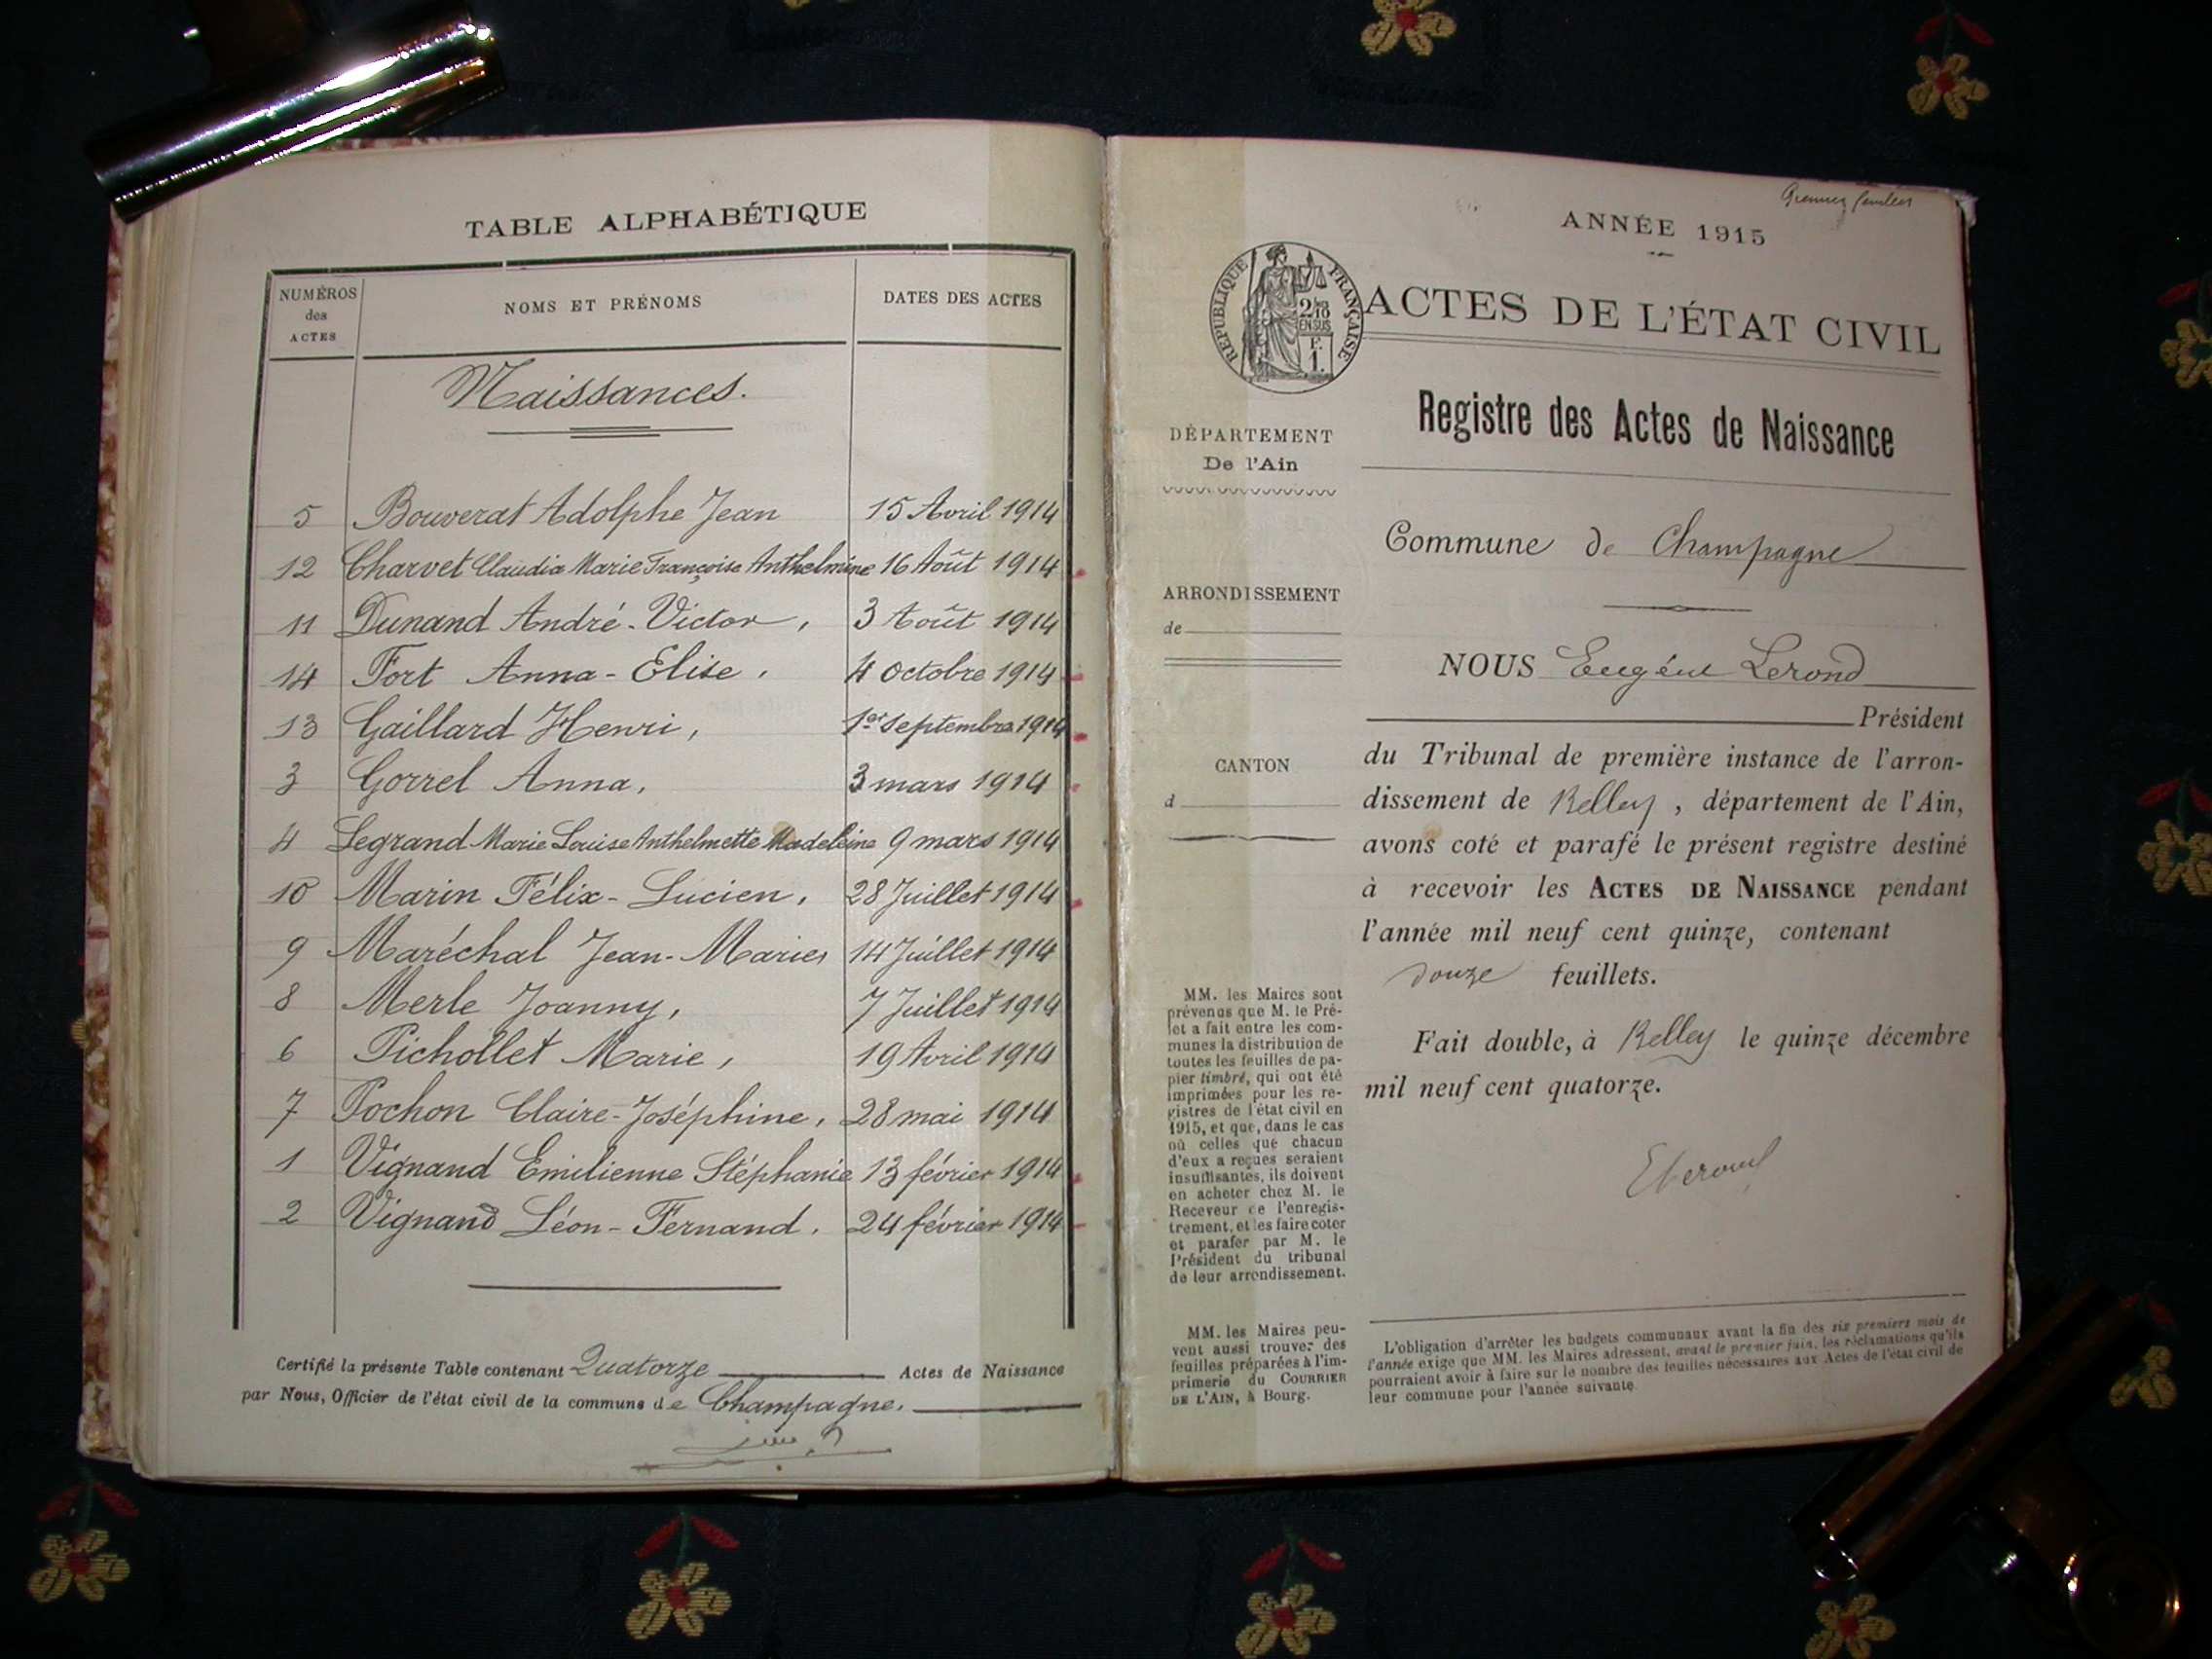 TABLE ALPHABÉTIQUE
NUMÉROS
des
ACTES
NOMS ET PRÉNOMS
DATES DES ACTES
Naissances.
5 Bouverat Adolphe Jean 15 Avril 1914
12 Charvet Claudia Marie Françoise Anthelmine 16 Août 1914
11 Dunand André-Victor, 3 Août 1914
14 Fort Anna-Elise, 4 Octobre 1914
13 Gaillard Henri, 1er Septembre 1914
3 Gorrel Anna, 3 mars 1914
4 Legrand Marie Louise Anthelmette Madeleine 9 mars 1914
10 Marin Félix-Lucien, 28 Juillet 1914
9 Maréchal Jean-Marie, 14 Juillet 1914
8 Merle Joanny, 7 Juillet 1914
6 Pichollet Marie, 19 Avril 1914
7 Pochon Claire-Joséphine, 28 mai 1914
1 Vignand Emilienne Stéphanie 13 février 1914
2 Vignand Léon-Fernand. 24 février 1914
Certifié la présente Table contenant Quatorze Actes de Naissance
par Nous, Officier de l'état civil de la commune de Champagne.
ANNÉE 1915
RÉPUBLIQUE FRANÇAISE
2/10
EN SUS
F.
1.
ACTES DE L'ÉTAT CIVIL
Registre des Actes de Naissance
DÉPARTEMENT
De l'Ain
Commune de Champagne
ARRONDISSEMENT
de
NOUS Eugène Lerond
Président
CANTON
d
du Tribunal de première instance de l'arron-
dissement de Belley, département de l'Ain,
avons coté et parafé le présent registre destiné
à recevoir les ACTES DE NAISSANCE pendant
l'année mil neuf cent quinze, contenant
douze feuillets.
Fait double, à Belley le quinze décembre
mil neuf cent quatorze.
MM. les Maires sont
prévenus que M. le Pré-
fet a fait entre les com-
munes la distribution de
toutes les feuilles de pa-
pier timbré, qui ont été
imprimées pour les re-
gistres de l'état civil en
1915, et que, dans le cas
où celles que chacun
d'eux a reçues seraient
insuffisantes, ils doivent
en acheter chez M. le
Receveur de l'enregis-
trement, et les faire coter
et parafer par M. le
Président du tribunal
de leur arrondissement.
MM. les Maires peu-
vent aussi trouver des
feuilles préparées à l'im-
primerie du COURRIER
DE L'AIN, à Bourg.
L'obligation d'arrêter les budgets communaux avant la fin des six premiers mois de
l'année exige que MM. les Maires adressent, avant le premier juin, les réclamations qu'ils
pourraient avoir à faire sur le nombre des feuilles nécessaires aux Actes de l'état civil de
leur commune pour l'année suivante.